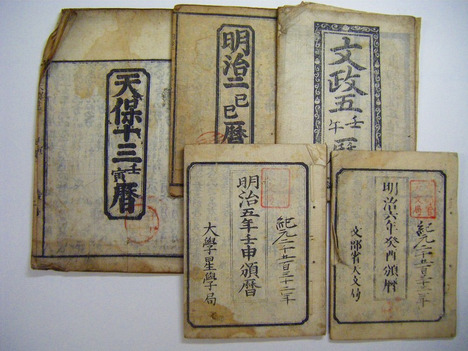 天保十三壬寅暦
明治二己巳暦
文政五壬午暦
紀元二千五百三十二年
明治五年壬申頒暦
大學星學局
紀元二千五百三十三年
明治六年癸酉頒暦
文部省天文局